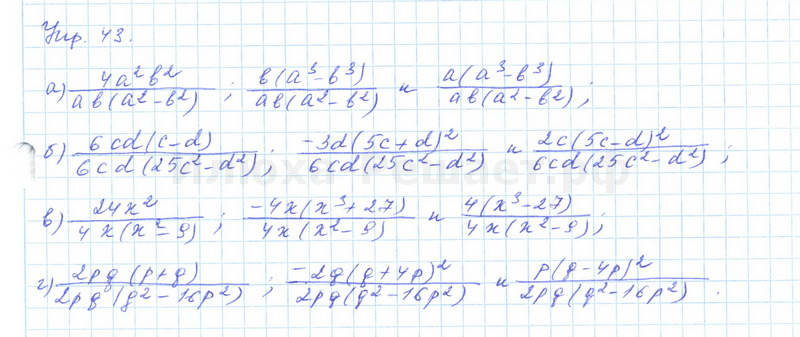 Упр. 43.
а) 4a²b² / ab(a²-b²) ; b(a³-b³) / ab(a²-b²) и a(a³-b³) / ab(a²-b²) ;
б) 6cd(c-d) / 6cd(25c²-d²) ; -3d(5c+d)² / 6cd(25c²-d²) и 2c(5c-d)² / 6cd(25c²-d²) ;
в) 24x² / 4x(x²-9) ; -4x(x³+27) / 4x(x²-9) и 4(x³-27) / 4x(x²-9) ;
г) 2pg(p+g) / 2pg(g²-16p²) ; -2g(g+4p)² / 2pg(g²-16p²) и p(g-4p)² / 2pg(g²-16p²) .